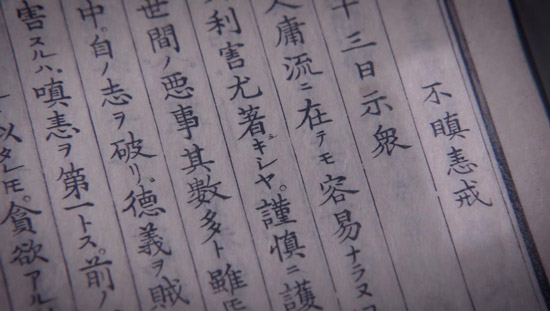 不瞋恚戒
十三日示衆
人庸流ニ在テモ容易ナラヌ
利害尤著キシヤ。謹慎ニ護
世間ノ悪事其數多ト雖𪜈
中。自ノ志ヲ破リ。徳義ヲ賊
害スルハ。嗔恚ヲ第一トス。前ノ
貪欲アル